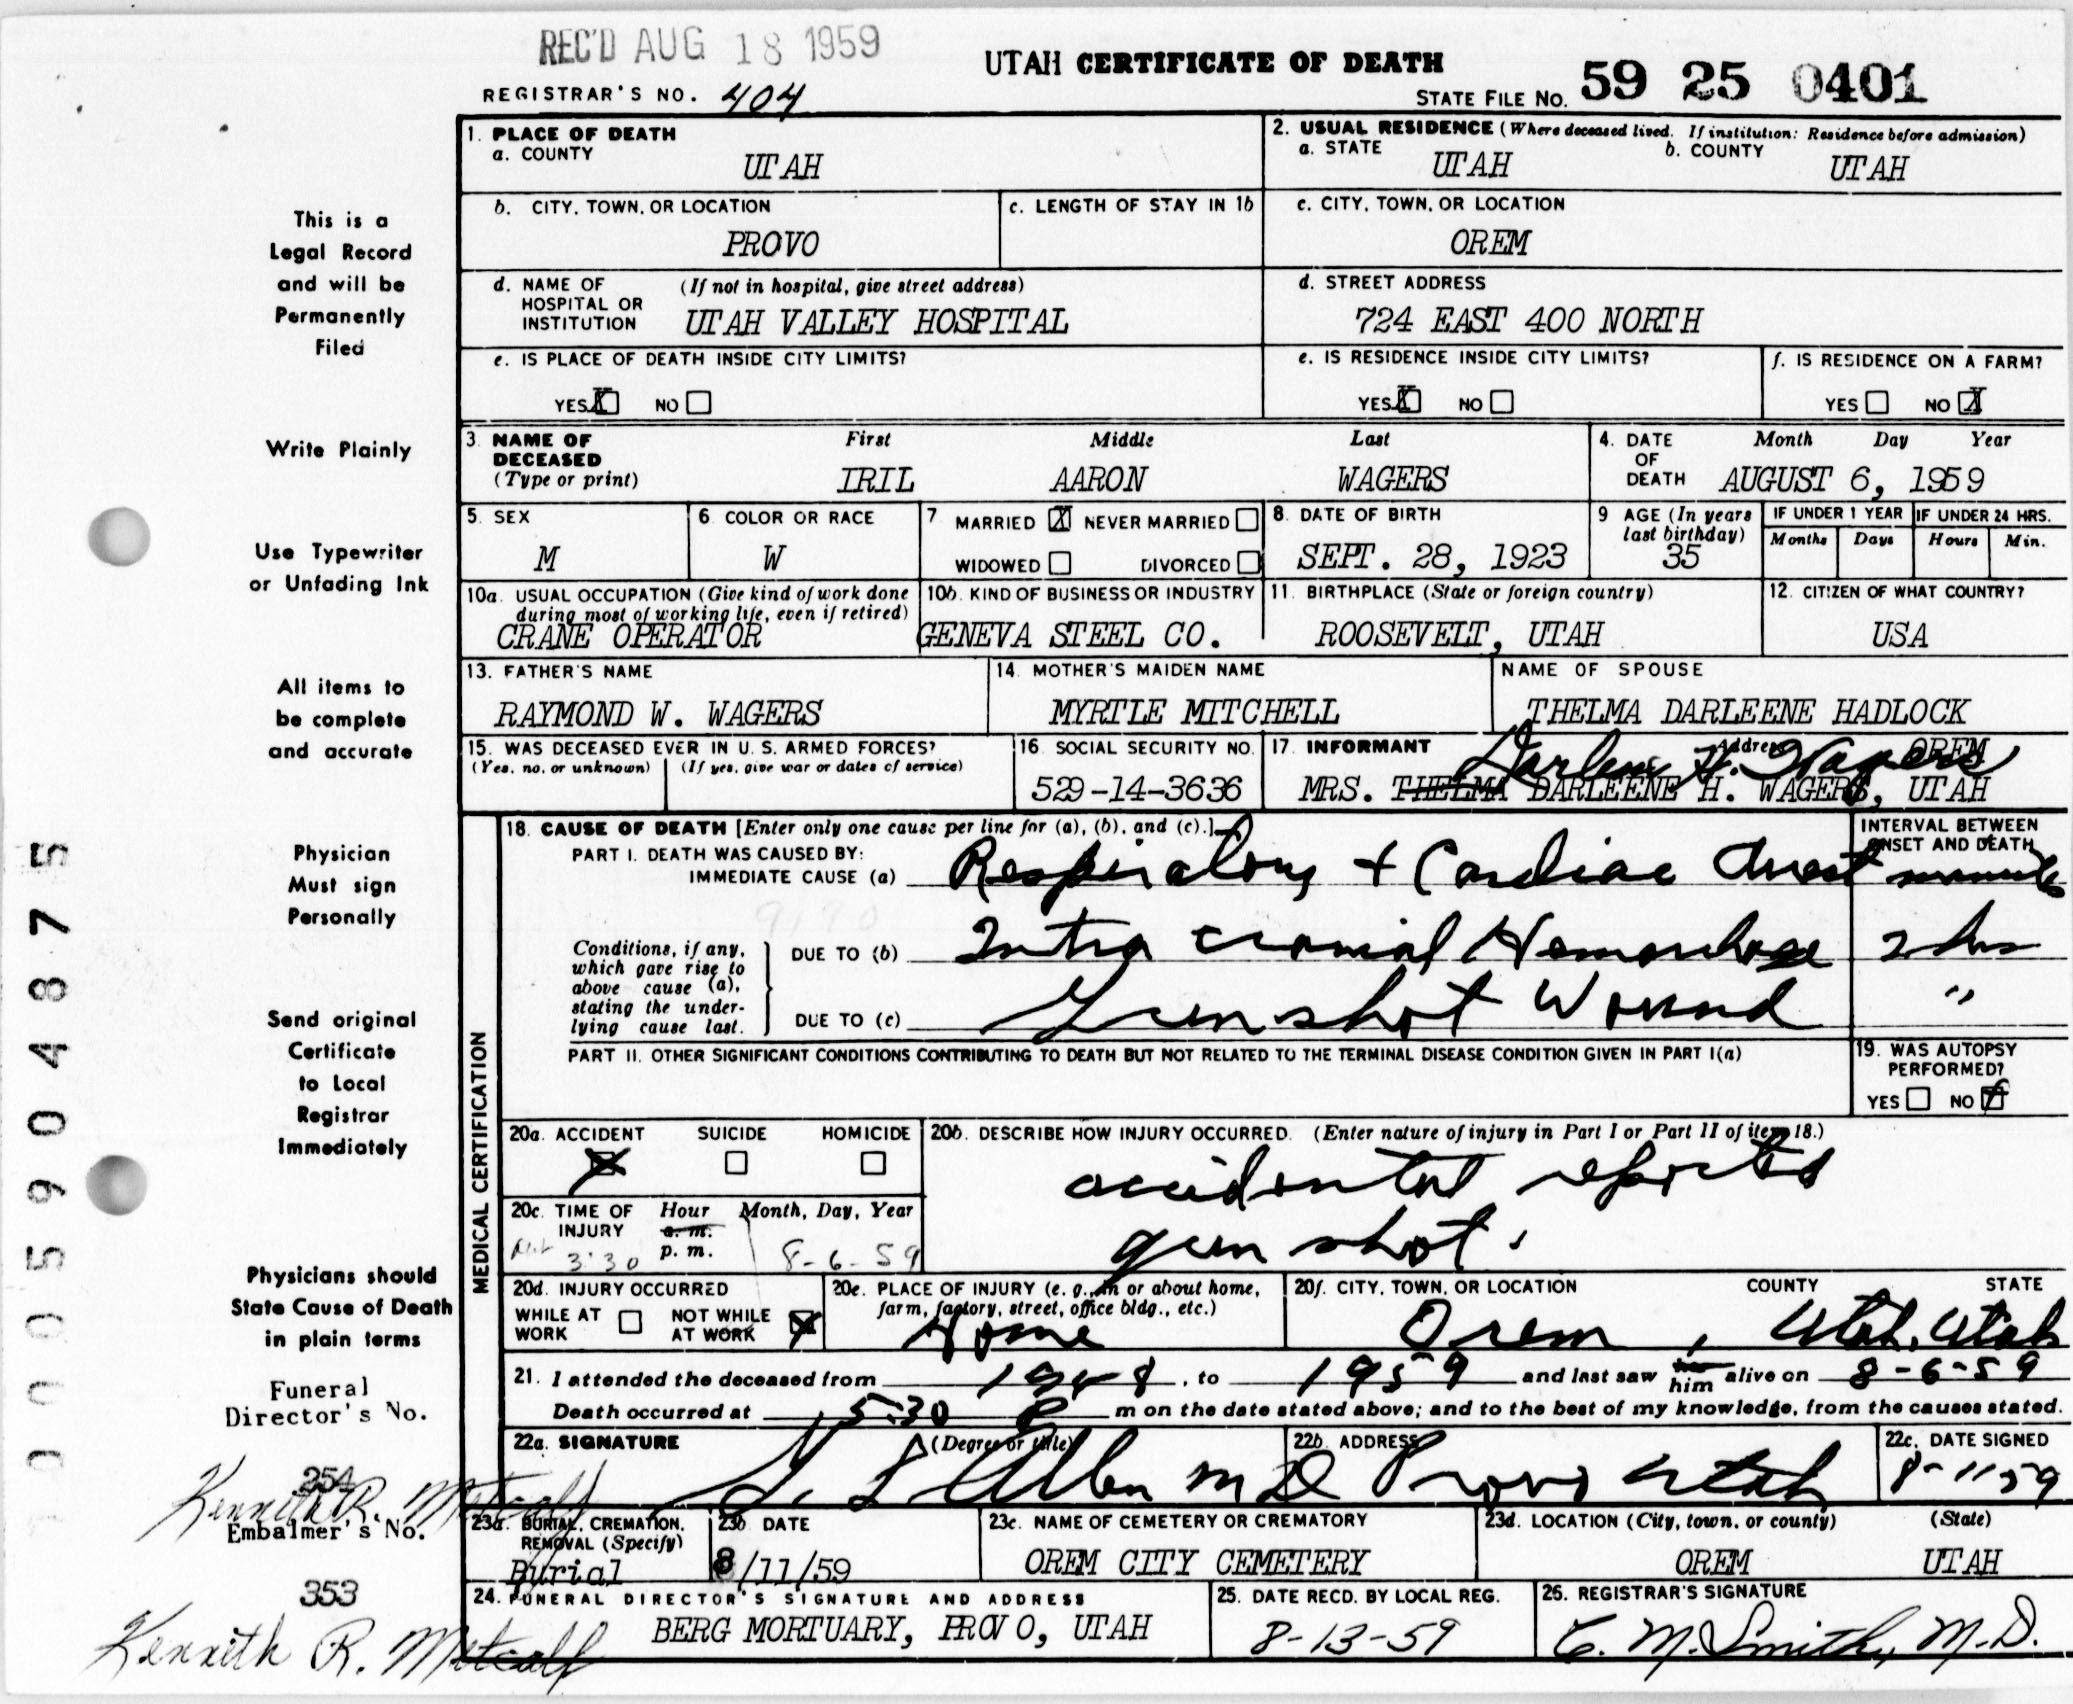 REC'D AUG 18 1959
UTAH CERTIFICATE OF DEATH
REGISTRAR'S NO. 404
STATE FILE NO. 59 25 0401
This is a
Legal Record
and will be
Permanently
Filed
Write Plainly
Use Typewriter
or Unfading Ink
All items to
be complete
and accurate
Physician
Must sign
Personally
Send original
Certificate
to Local
Registrar
Immediately
Physicians should
State Cause of Death
in plain terms
Funeral
Director's No.
254
Kenneth R. Metcalf
Embalmer's No.
353
Kenneth R. Metcalf
000590 48 7 5
1. PLACE OF DEATH
a. COUNTY
UTAH
2. USUAL RESIDENCE (Where deceased lived. If institution: Residence before admission)
a. STATE UTAH b. COUNTY UTAH
b. CITY, TOWN, OR LOCATION
PROVO
c. LENGTH OF STAY IN 1b
c. CITY, TOWN, OR LOCATION
OREM
d. NAME OF HOSPITAL OR INSTITUTION (If not in hospital, give street address)
UTAH VALLEY HOSPITAL
d. STREET ADDRESS
724 EAST 400 NORTH
e. IS PLACE OF DEATH INSIDE CITY LIMITS?
YES X NO
e. IS RESIDENCE INSIDE CITY LIMITS?
YES X NO
f. IS RESIDENCE ON A FARM?
YES NO X
3. NAME OF DECEASED (Type or print)
First Middle Last
IRIL AARON WAGERS
4. DATE OF DEATH Month Day Year
AUGUST 6, 1959
5. SEX
M
6. COLOR OR RACE
W
7 MARRIED X NEVER MARRIED
WIDOWED DIVORCED
8. DATE OF BIRTH
SEPT. 28, 1923
9 AGE (In years last birthday)
35
IF UNDER 1 YEAR
Months Days
IF UNDER 24 HRS.
Hours Min.
10a. USUAL OCCUPATION (Give kind of work done during most of working life, even if retired)
CRANE OPERATOR
10b. KIND OF BUSINESS OR INDUSTRY
GENEVA STEEL CO.
11. BIRTHPLACE (State or foreign country)
ROOSEVELT, UTAH
12. CITIZEN OF WHAT COUNTRY?
USA
13. FATHER'S NAME
RAYMOND W. WAGERS
14. MOTHER'S MAIDEN NAME
MYRTLE MITCHELL
NAME OF SPOUSE
THELMA DARLEENE HADLOCK
15. WAS DECEASED EVER IN U. S. ARMED FORCES?
(Yes, no, or unknown) (If yes, give war or dates of service)
16. SOCIAL SECURITY NO.
529-14-3636
17. INFORMANT Address OREM
Darlene H. Wagers
MRS. THELMA DARLEENE H. WAGERS, UTAH
MEDICAL CERTIFICATION
18. CAUSE OF DEATH [Enter only one cause per line for (a), (b), and (c).]
INTERVAL BETWEEN ONSET AND DEATH
PART I. DEATH WAS CAUSED BY:
IMMEDIATE CAUSE (a) Respiratory + Cardiac Arrest minutes
9190
Conditions, if any, which gave rise to above cause (a), stating the underlying cause last.
DUE TO (b) Intra cranial Hemorrhage 2 hrs
DUE TO (c) Gunshot Wound "
PART II. OTHER SIGNIFICANT CONDITIONS CONTRIBUTING TO DEATH BUT NOT RELATED TO THE TERMINAL DISEASE CONDITION GIVEN IN PART I(a)
19. WAS AUTOPSY PERFORMED?
YES NO X
20a. ACCIDENT SUICIDE HOMICIDE
X
20b. DESCRIBE HOW INJURY OCCURRED. (Enter nature of injury in Part I or Part II of item 18.)
accidental reported
gun shot.
20c. TIME OF INJURY Hour Month, Day, Year
a. m.
3:30 p. m. 8-6-59
20d. INJURY OCCURRED
WHILE AT WORK NOT WHILE AT WORK X
20e. PLACE OF INJURY (e. g., in or about home, farm, factory, street, office bldg., etc.)
Home
20f. CITY, TOWN, OR LOCATION COUNTY STATE
Orem, Utah, Utah
21. I attended the deceased from 1948, to 1959 and last saw her him alive on 8-6-59
Death occurred at 5:30 P m on the date stated above; and to the best of my knowledge, from the causes stated.
22a. SIGNATURE (Degree or title)
Allen MD
22b. ADDRESS
Provo Utah
22c. DATE SIGNED
8-11-59
23a. BURIAL, CREMATION, REMOVAL (Specify)
Burial
23b DATE
8/11/59
23c. NAME OF CEMETERY OR CREMATORY
OREM CITY CEMETERY
23d. LOCATION (City, town, or county) (State)
OREM UTAH
24. FUNERAL DIRECTOR'S SIGNATURE AND ADDRESS
BERG MORTUARY, PROVO, UTAH
25. DATE RECD. BY LOCAL REG.
8-13-59
26. REGISTRAR'S SIGNATURE
C. M. Smith, M.D.